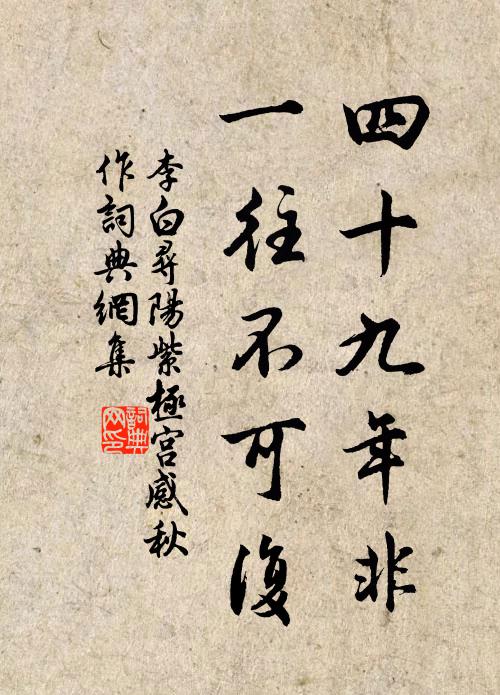 四十九年非
一往不可復
李白尋陽紫極宮感秋
作詞典網集
詞典
网印